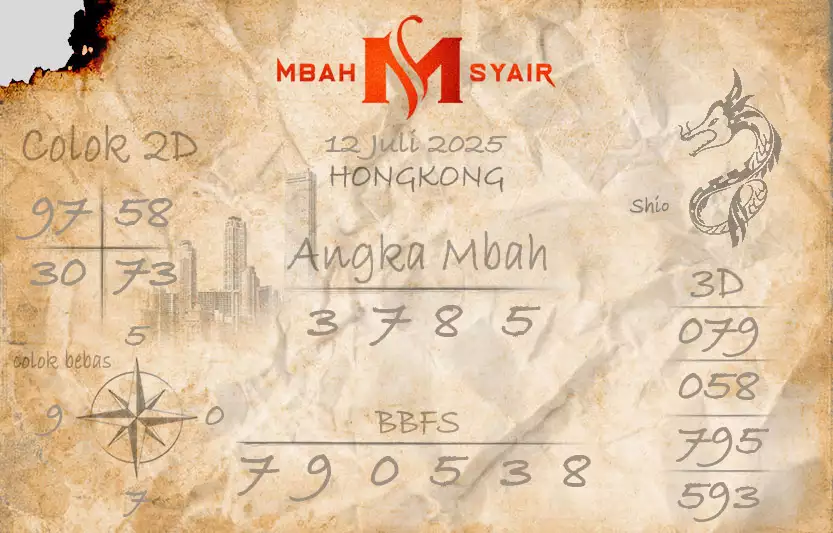 MBAH M SYAIR
12 Juli 2025
HONGKONG
Colok 2D
97 58
30 73
Shio
Angka Mbah
3 7 8 5
3D
079
058
795
593
5
colok bebas
9 0
7
BBFS
7 9 0 5 3 8